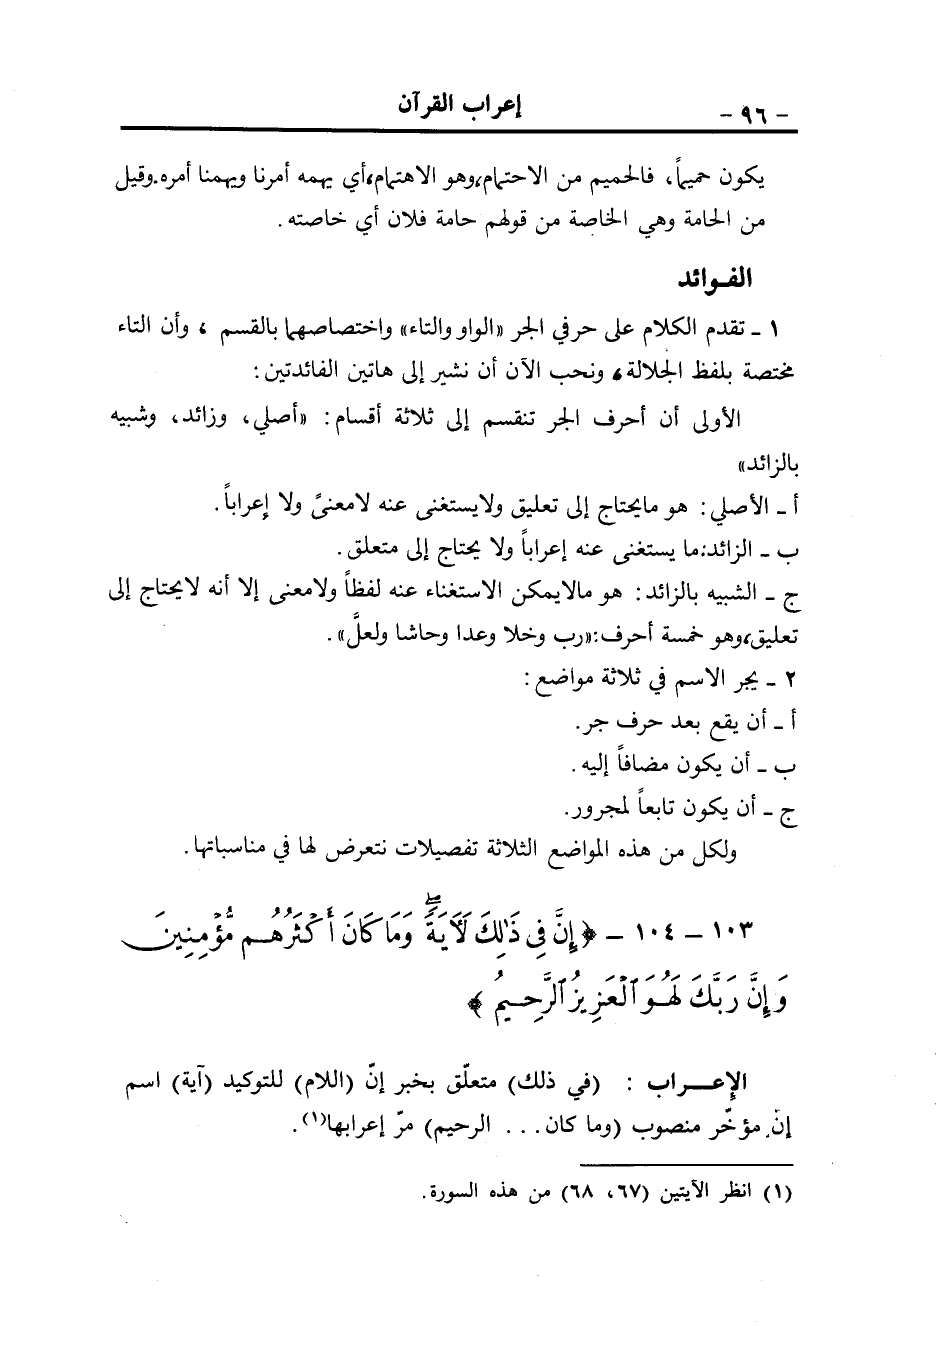 - ٩٦ -
إعراب القرآن
يكون حميماً، فالحميم من الاحتمام، وهو الاهتمام، أي يهمه أمرنا ويهمنا أمره. وقيل
من الحامة وهي الخاصة من قولهم حامة فلان أي خاصته.
الفـوائد
١ ـ تقدم الكلام على حرفي الجر «الواو والتاء» واختصاصهما بالقسم ، وأن التاء
مختصة بلفظ الجلالة، ونحب الآن أن نشير إلى هاتين الفائدتين:
الأولى أن أحرف الجر تنقسم إلى ثلاثة أقسام: «أصلي، وزائد، وشبيه
بالزائد»
أ ـ الأصلي: هو مايحتاج إلى تعليق ولايستغنى عنه لامعنىً ولا إعراباً.
ب ـ الزائد:ما يستغنى عنه إعراباً ولا يحتاج إلى متعلق.
ج ـ الشبيه بالزائد: هو مالايمكن الاستغناء عنه لفظاً ولامعنى إلا أنه لايحتاج إلى
تعليق، وهو خمسة أحرف:«رب وخلا وعدا وحاشا ولعلَّ».
٢ ـ يجر الاسم في ثلاثة مواضع:
أ ـ أن يقع بعد حرف جر.
ب ـ أن يكون مضافاً إليه.
ج ـ أن يكون تابعاً لمجرور.
ولكل من هذه المواضع الثلاثة تفصيلات نتعرض لها في مناسباتها.
١٠٣ ـ ١٠٤ ـ ﴿إِنَّ فِي ذَٰلِكَ لَآيَةً ۖ وَمَا كَانَ أَكْثَرُهُم مُّؤْمِنِينَ
وَإِنَّ رَبَّكَ لَهُوَ ٱلْعَزِيزُ ٱلرَّحِيمُ﴾
الإعـــراب : (في ذلك) متعلّق بخبر إنّ (اللام) للتوكيد (آية) اسم
إنّ مؤخّر منصوب (وما كان... الرحيم) مرّ إعرابها(١).
(١) انظر الآيتين (٦٧، ٦٨) من هذه السورة.